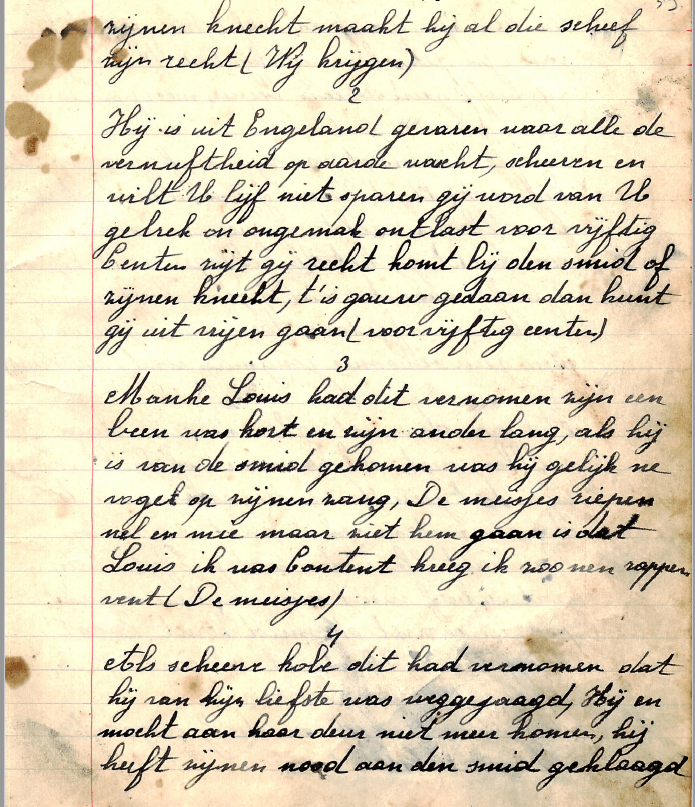 zijnen knecht maakt hij al die scheef
zijn recht ( Wij krijgen)
2
Hij is uit Engeland gevaren waar alle de
vernuftheid op aarde wascht, scheeren en
wilt U lijf niet sparen gij word van U
gebrek en ongemak ontlast voor vijftig
Centen zijt gij recht komt bij den smid of
zijnen knecht, t'is gauw gedaan dan kunt
gij uit vrijen gaan( voor vijftig centen)
3
Manke Louis had dit vernomen zijn een
been was kort en zijn ander lang, als hij
is van de smid gekomen was hij gelijk ne
vogel op zijnen zang, De meisjes riepen
nel en mie maar ziet hem gaan is dat
Louis ik was Content kreeg ik zoo nen rappen
vent ( De meisjes)
4
Als scheeve kobe dit had vernomen dat
hij van zijn liefste was weggejaagd, Hij en
mocht aan haar deur niet meer komen, hij
heeft zijnen nood aan den smid geklaagd